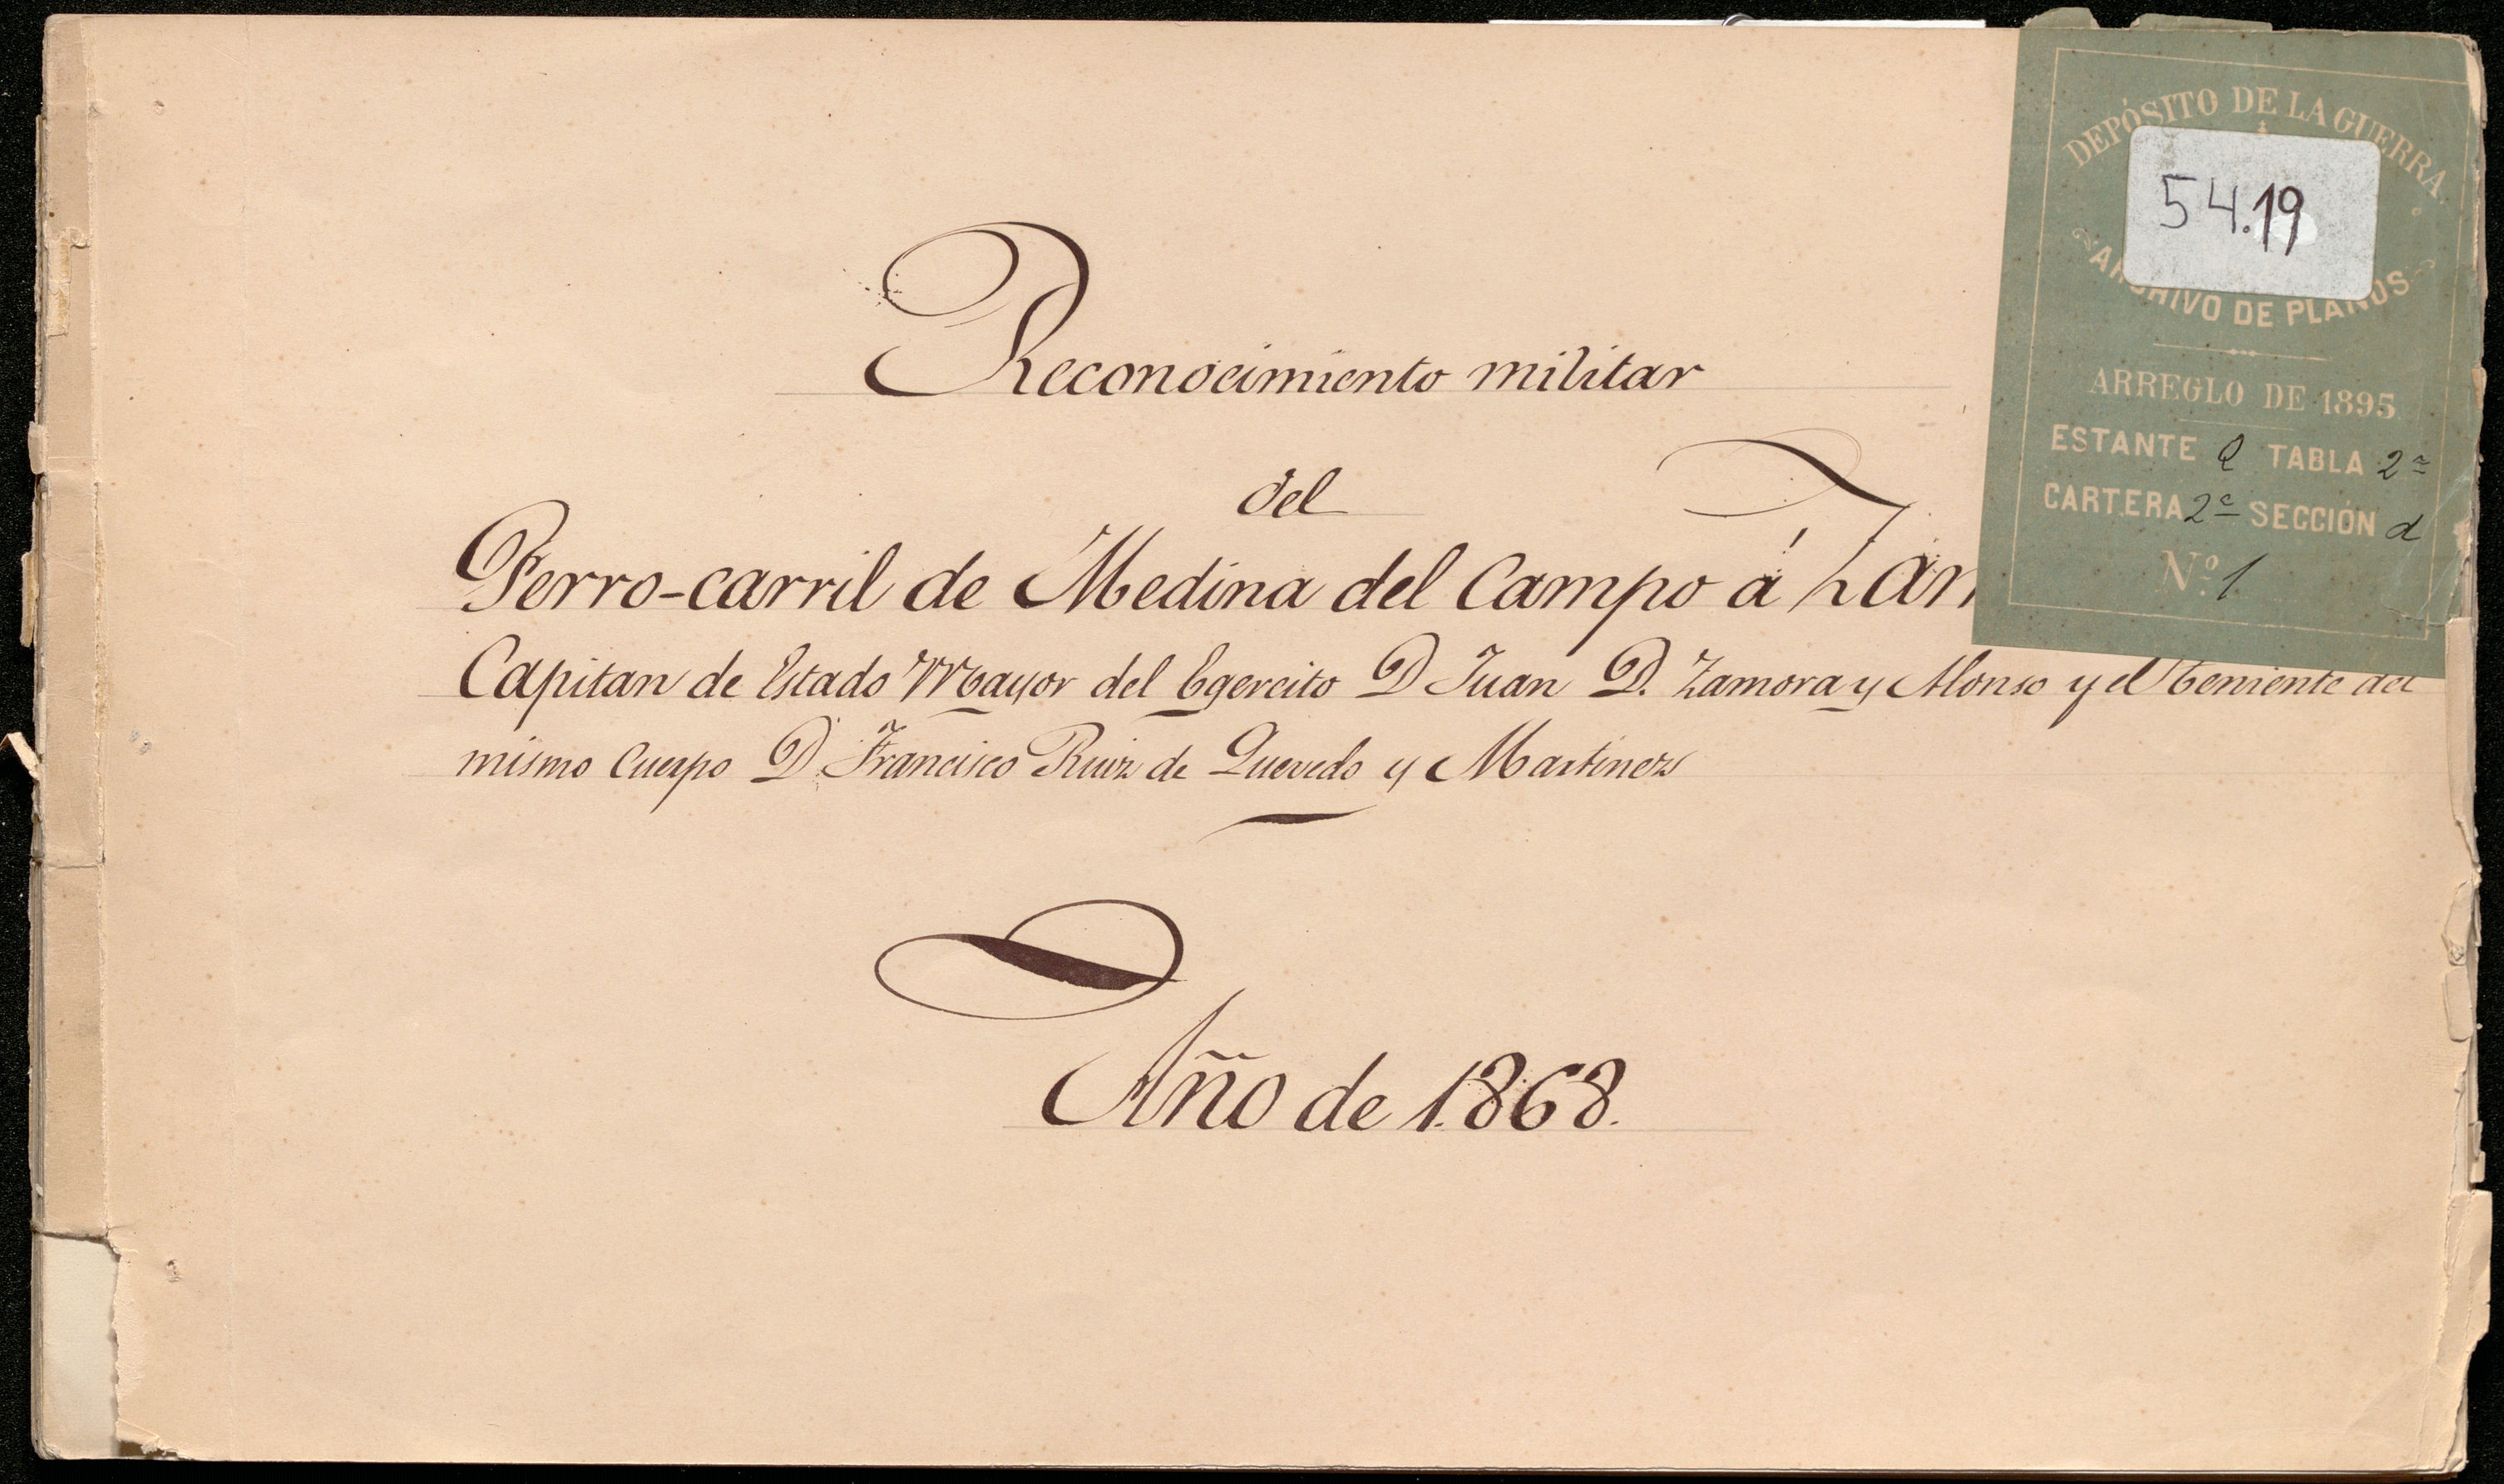 Reconocimiento militar
del
Ferro-carril de Medina del Campo á Zam
Capitan de Estado Mayor del Egercito D Juan D. Zamora y Alonso y el Teniente del
mismo Cuerpo D. Francisco Ruiz de Quevedo y Martinez
Año de 1868.
DEPÓSITO DE LA GUERRA
54.19
ARCHIVO DE PLANOS
ARREGLO DE 1895
ESTANTE Q TABLA 2ª
CARTERA 2ª SECCIÓN d
Nº 1